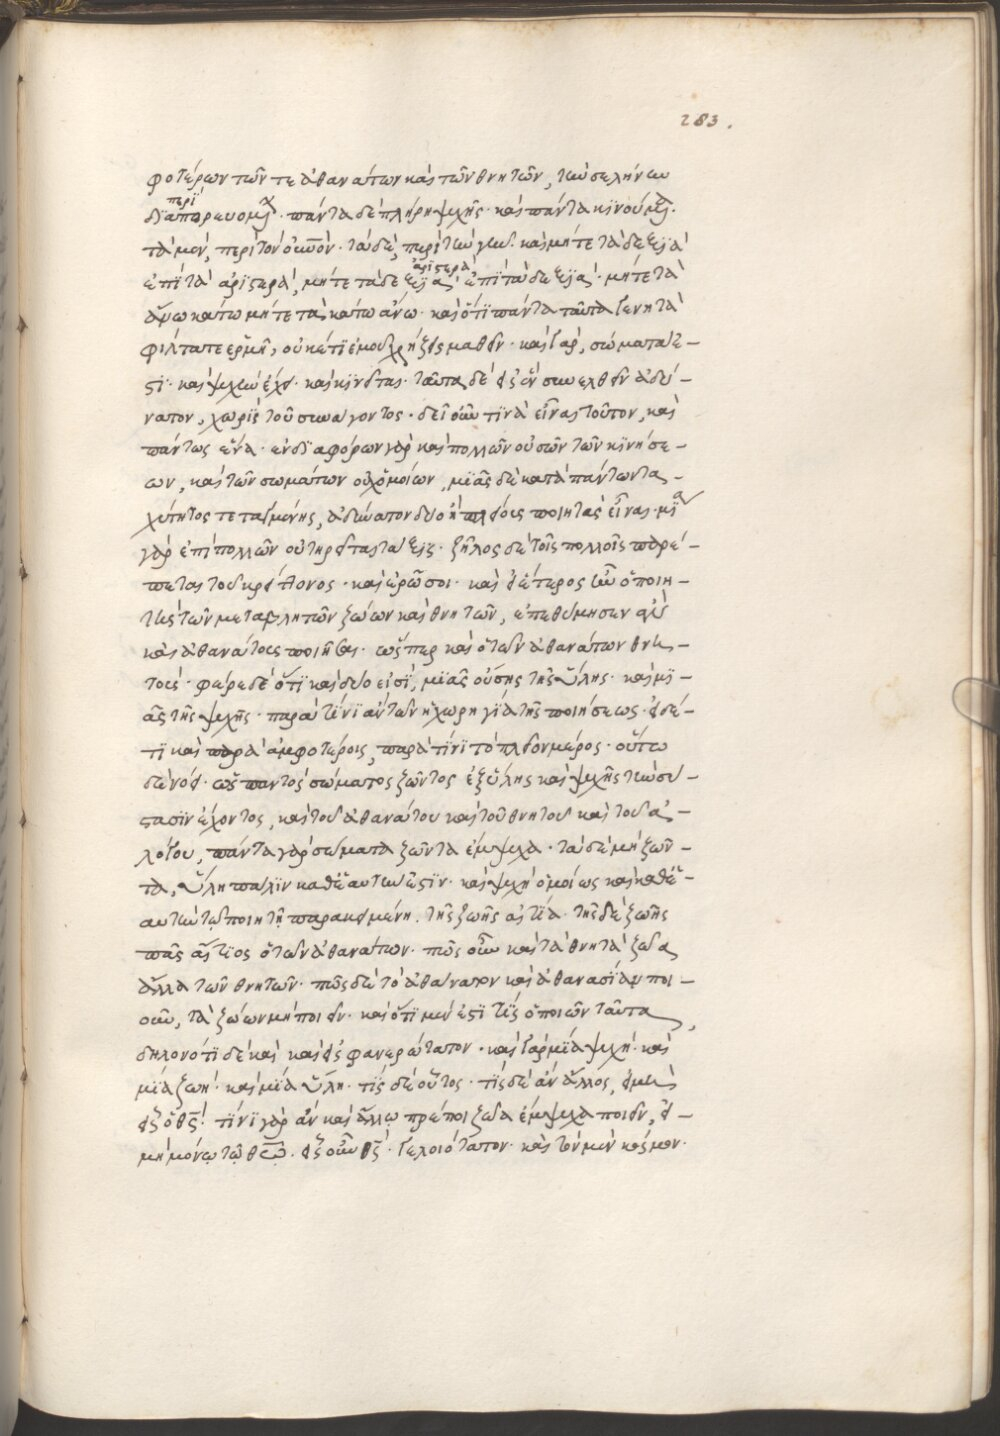 283.
φοτέρων τῶν τε ἀθανάτων καὶ τῶν θνητῶν, τὴν σελήνην
περὶ
διαπορευομένα· πάντα δὲ πλήρη ψυχῆς· καὶ πάντα κινούμενα·
τὰ μὲν, περὶ τὸν οὐρανόν· τὰ δὲ, περὶ τὴν γῆν· καὶ μήτε τὰ δεξιὰ
ἐπὶ τὰ ἀριστερά, μήτε τὰ ἀριστερὰ ἐπὶ τὰ δεξιά· μήτε τὰ
ἄνω κάτω μήτε τὰ κάτω ἄνω· καὶ ὅτι πάντα ταῦτα γενητὰ
φίλτατε ἑρμῆ, οὐκέτι ἐμοῦ χρήζεις μαθεῖν· καὶ γὰρ, σώματά ἐ-
στι· καὶ ψυχὴν ἔχει· καὶ κινεῖται· ταῦτα δὲ εἰς ἓν συνελθεῖν ἀδύ-
νατον, χωρὶς τοῦ συνάγοντος· δεῖ οὖν τινὰ εἶναι τοῦτον, καὶ
πάντως ἕνα· ἐνδιαφόρων γὰρ καὶ πολλῶν οὐσῶν τῶν κινήσε-
ων, καὶ τῶν σωμάτων οὐχ ὁμοίων, μιᾶς δὲ κατὰ πάντων τα-
χύτητος τεταγμένης, ἀδύνατον δύο ἢ πλείους ποιητὰς εἶναι· μία
γὰρ ἐπὶ πολλῶν οὐ τηρεῖται τάξις· ζῆλος δὲ τοῖς πολλοῖς παρέ-
πεται τοῦ κρείττονος· καὶ ἐρῶ σοι· καὶ εἰ ἕτερος ἦν ὁ ποιη-
τὴς τῶν μεταβλητῶν ζώων καὶ θνητῶν, ἐπεθύμησεν ἂν
καὶ ἀθανάτους ποιῆσαι· ὥσπερ καὶ ὁ τῶν ἀθανάτων θνη-
τούς· φέρε δὲ ὅτι καὶ δύο εἰσί, μιᾶς οὔσης τῆς ὕλης· καὶ μι-
ᾶς τῆς ψυχῆς· παρὰ τίνι αὐτῶν ἡ χωρηγία τῆς ποιήσεως· εἰ δέ-
τι καὶ παρὰ ἀμφοτέροις, παρὰ τίνι τὸ πλεῖον μέρος· οὕτω
δὲ νόει· ὡς παντὸς σώματος ζῶντος ἐξ ὕλης καὶ ψυχῆς τὴν σύ-
στασιν ἔχοντος, καὶ τοῦ ἀθανάτου καὶ τοῦ θνητοῦ καὶ τοῦ ἀ-
λόγου, πάντα γὰρ σώματα ζῶντα ἔμψυχα· τὰ δὲ μὴ ζῶν-
τα, ὕλη πάλιν καθ' ἑαυτήν ἐστιν· καὶ ψυχὴ ὁμοίως καὶ καθ' ἑ-
αυτὴν τῷ ποιητῇ παρακειμένη, τῆς ζωῆς αἰτία· τῆς δὲ ζωῆς
πᾶς αἴτιος ὁ τῶν ἀθανάτων· πῶς οὖν καὶ τὰ θνητὰ ζῶα
ἄλλα τῶν θνητῶν· πῶς δὲ τὸ ἀθάνατον καὶ ἀθανασίαν ποι-
οῦν, τὰ ζώων μὴ ποιεῖν· καὶ ὅτι μὲν ἔστι τὶς ὁ ποιῶν ταῦτα,
δῆλον ὅτι δὲ καὶ καὶ εἷς φανερώτατον· καὶ γὰρ μία ψυχή· καὶ
μία ζωή· καὶ μία ὕλη· τίς δὲ οὗτος· τίς δὲ ἂν ἄλλος, εἰ μὴ
εἷς ὁ θεός! τίνι γὰρ ἂν καὶ ἄλλῳ πρέποι ζῶα ἔμψυχα ποιεῖν, εἰ-
μὴ μόνῳ τῷ θεῷ· εἷς οὖν θεός· γελοιότατον· καὶ τὸν μὲν κόσμον·